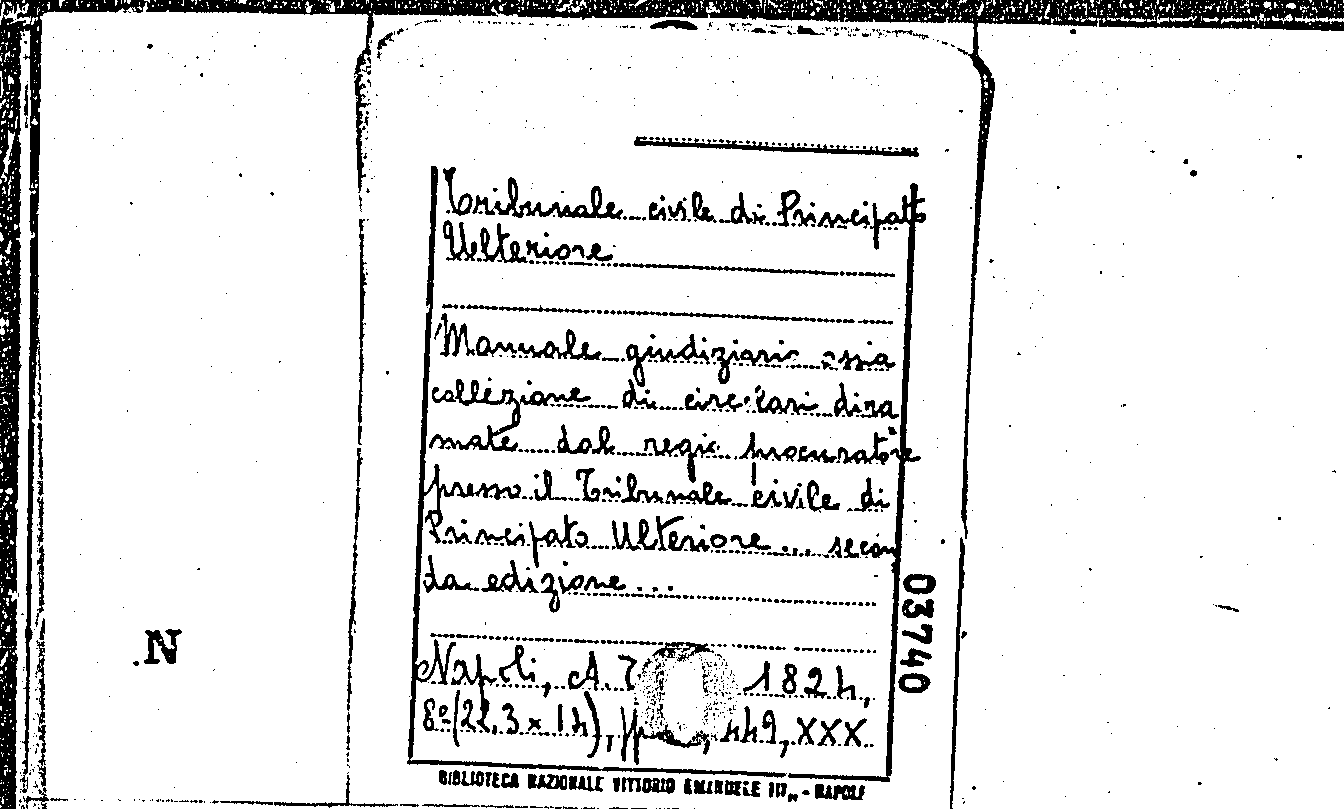 Tribunale civile di Principato
Ulteriore
Manuale giudiziario ossia
collezione di circolari dira
mate dal regio procuratore
presso il Tribunale civile di
Principato Ulteriore ... secon
da edizione ...
Napoli, A. T 1824,
8º (22,3 x 14), pp. , 449, XXX
BIBLIOTECA NAZIONALE VITTORIO EMANUELE III„ - NAPOLI
03740
.N